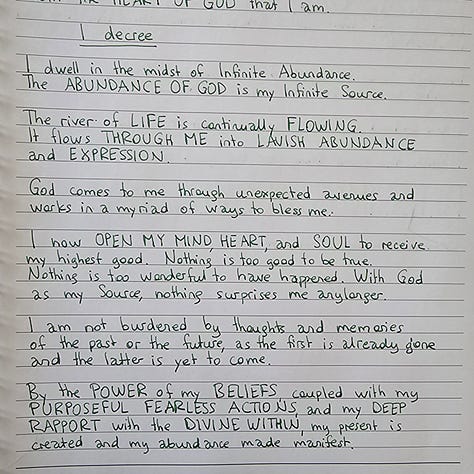 HEART OF GOD that I am.
I decree
I dwell in the midst of Infinite Abundance.
The ABUNDANCE OF GOD is my Infinite Source.
The river of LIFE is continually FLOWING.
It flows THROUGH ME into LAVISH ABUNDANCE
and EXPRESSION.
God comes to me through unexpected avenues and
works in a myriad of ways to bless me.
I now OPEN MY MIND HEART, and SOUL to receive
my highest good. Nothing is too good to be true.
Nothing is too wonderful to have happened. With God
as my Source, nothing surprises me anylonger.
I am not burdened by thoughts and memories
of the past or the future, as the first is already gone
and the latter is yet to come.
By the POWER of my BELIEFS, coupled with my
PURPOSEFUL FEARLESS ACTIONS, and my DEEP
RAPPORT with the DIVINE WITHIN, my present is
created and my abundance made manifest.